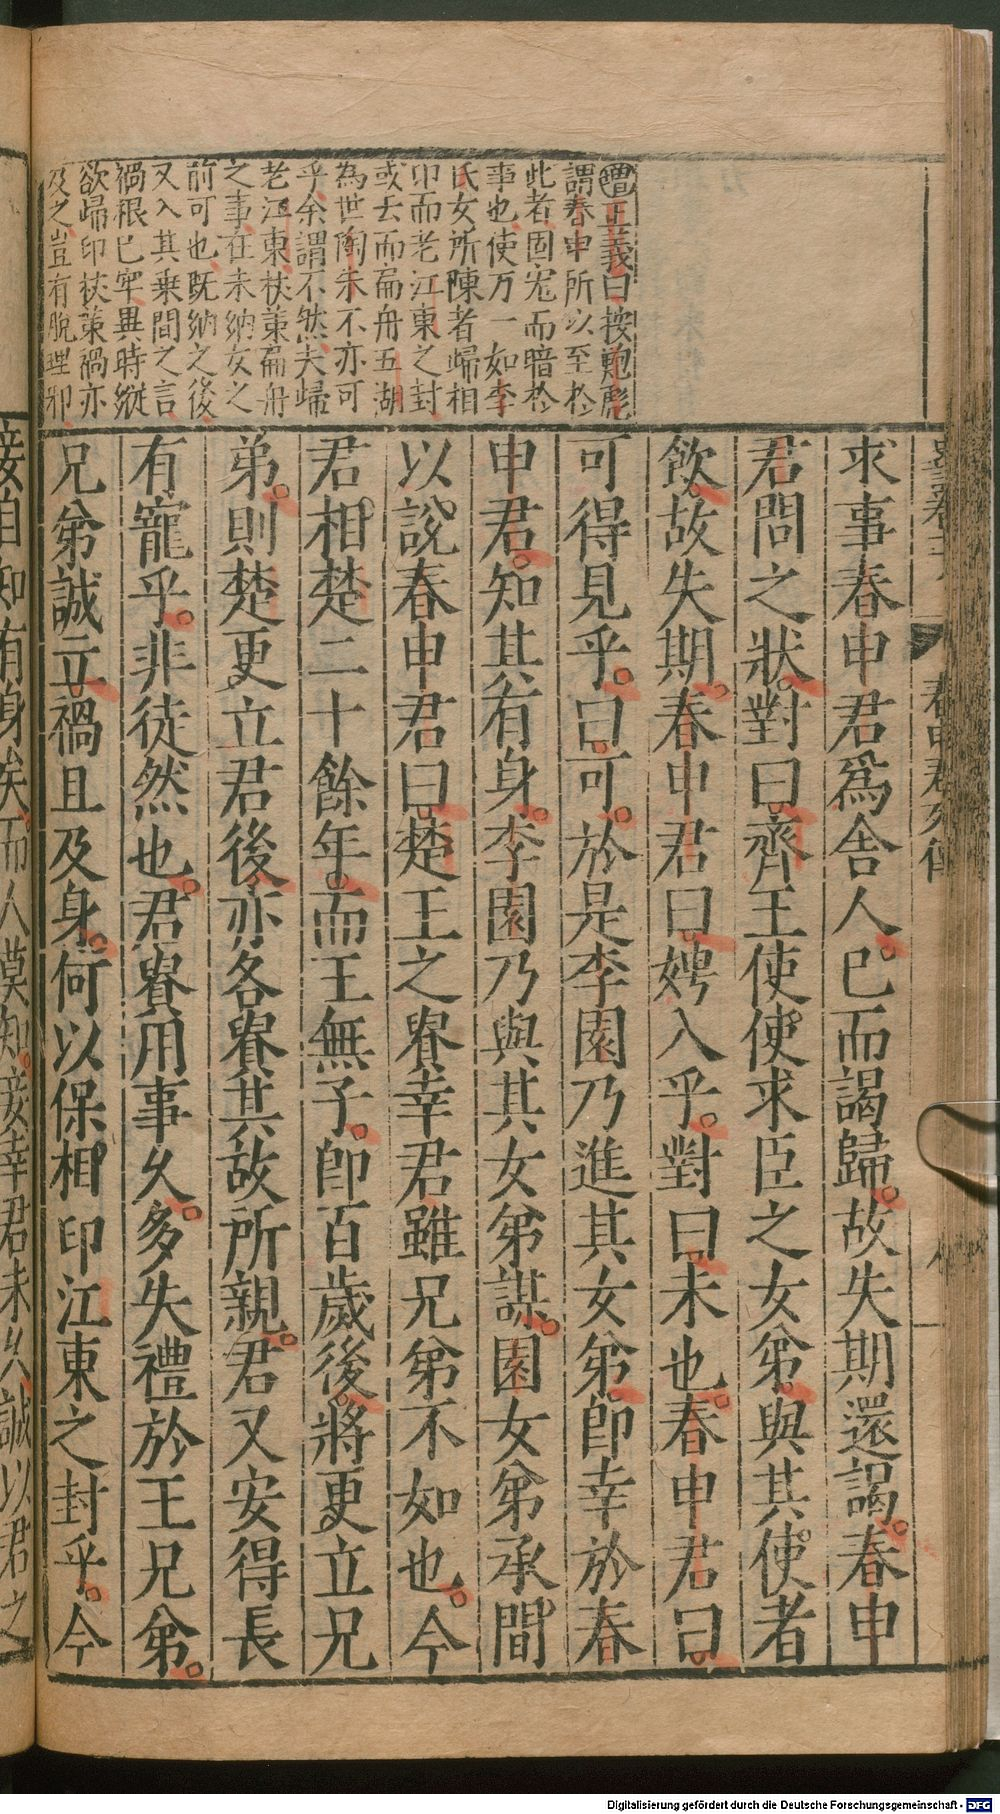 求事春申君爲舍人已而謁歸故失期還謁春申
君問之狀對曰齊王使使求臣之女弟與其使者
飲故失期春申君曰娉入乎對曰未也春申君曰
可得見乎曰可於是李園乃進其女弟即幸於春
申君知其有身李園乃與其女弟謀園女弟承間
以說春申君曰楚王之貴幸君雖兄弟不如也今
君相楚二十餘年而王無子即百歲後將更立兄
弟則楚更立君後亦各貴其故所親君又安得長
有寵乎非徒然也君貴用事久多失禮於王兄弟
兄弟誠立禍且及身何以保相印江東之封乎今
正義曰按鮑彪
謂春申所以至於
此者固寵而暗於
事也使万一如李
氏女所陳者歸相
印而老江東之封
或去而扁舟五湖
為世陶朱不亦可
乎余謂不然夫歸
老江東扶策扁舟
之事在未納女之
前可也既納之後
又入其乗間之言
禍根已牢異時縱
欲歸印扶策禍亦
及之豈有脫理邪
妾自知有身矣而人莫知妾幸君未久誠以君之
春申君列傳
Digitalisierung gefördert durch die Deutsche Forschungsgemeinschaft - DFG